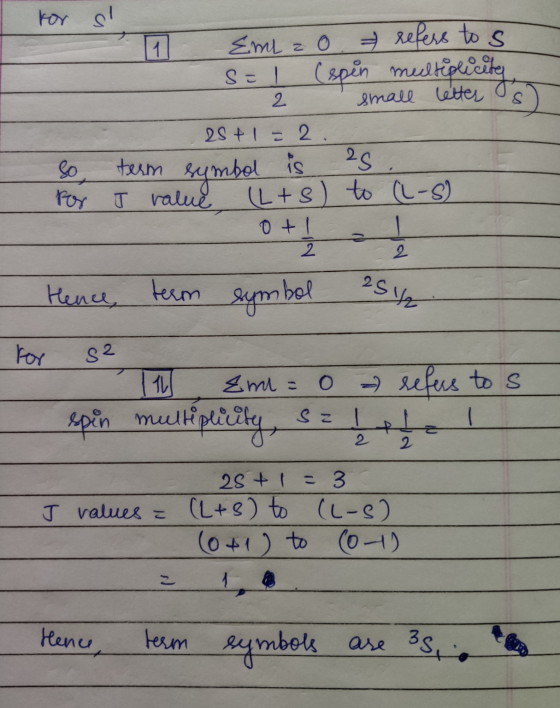 For S¹,
1 ΣmL = 0 ⇒ refers to S
S = 1/2 (spin multiplicity,
small letter s)
2S+1 = 2.
So, term symbol is ²S.
For J value, (L+S) to (L-S)
0 + 1/2 = 1/2
Hence, term symbol ²S1/2.
For S²,
1l, Σml = 0 ⇒ refers to S
spin multiplicity, S = 1/2 + 1/2 = 1
2S+1 = 3
J values = (L+S) to (L-S)
(0+1) to (0-1)
= 1,
Hence, term symbols are ³S₁.